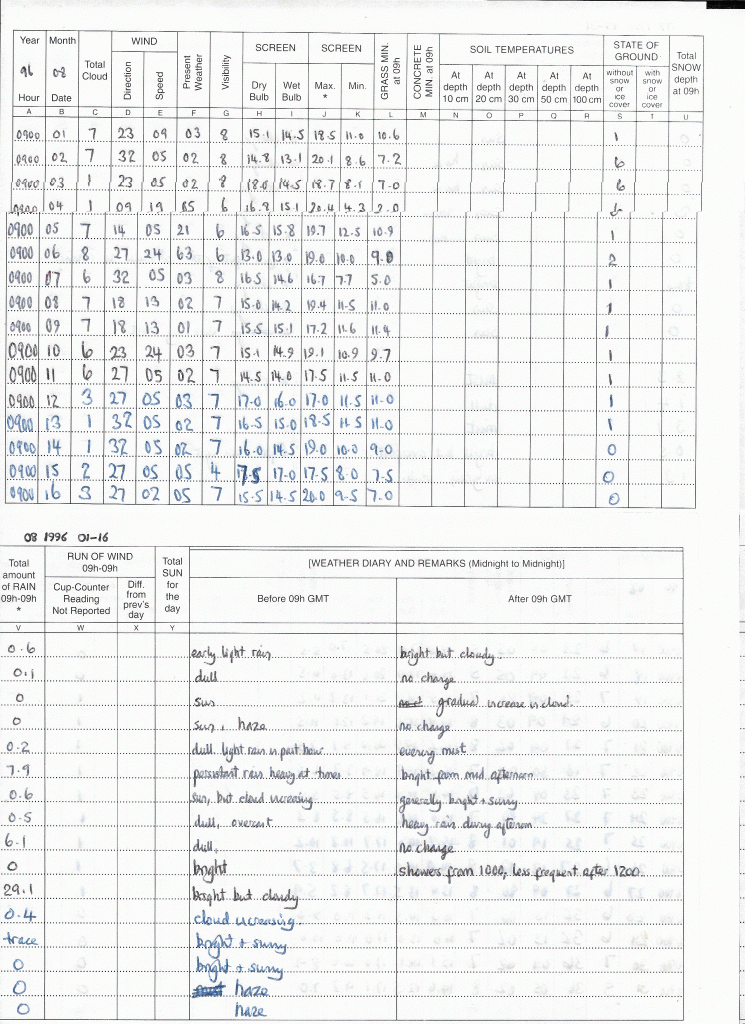 Year Month Total Cloud WIND Present Weather Visibility SCREEN SCREEN GRASS MIN. at 09h CONCRETE MIN. at 09h SOIL TEMPERATURES STATE OF GROUND Total SNOW depth at 09h
96 08 Direction Speed Dry Bulb Wet Bulb Max. * Min. At depth 10 cm At depth 20 cm At depth 30 cm At depth 50 cm At depth 100 cm without snow or ice cover with snow or ice cover
Hour Date
A B C D E F G H I J K L M N O P Q R S T U
0900 01 7 23 09 03 8 15.1 14.5 18.5 11.0 10.6 1
0900 02 7 32 05 02 8 14.8 13.1 20.1 8.6 7.2 6
0900 03 1 23 05 02 8 18.0 14.5 18.7 8.1 7.0 6
0900 04 1 09 19 05 6 16.8 15.1 20.4 4.3 2.0 6
0900 05 7 14 05 21 6 16.5 15.8 19.7 12.5 10.9 1
0900 06 8 27 24 63 6 13.0 13.0 19.0 10.0 9.0 2
0900 07 6 32 05 03 8 16.5 14.6 16.7 7.7 5.0 1
0900 08 7 18 13 02 7 15.0 14.2 19.4 11.5 11.0 1
0900 09 7 18 13 01 7 15.5 15.1 17.2 11.6 11.4 1
0900 10 6 23 24 03 7 15.1 14.9 19.1 10.9 9.7 1
0900 11 6 27 05 02 7 14.5 14.0 17.5 11.5 11.0 1
0900 12 3 27 05 03 7 17.0 16.0 17.0 11.5 11.0 1
0900 13 1 32 05 02 7 16.5 15.0 18.5 11.5 11.0 1
0900 14 1 32 05 02 7 16.0 14.5 19.0 10.0 9.0 0
0900 15 2 27 05 05 4 17.5 17.0 17.5 8.0 7.5 0
0900 16 3 27 02 05 7 15.5 14.5 20.0 9.5 7.0 0
08 1996 01-16
Total amount of RAIN 09h-09h * RUN OF WIND 09h-09h Total SUN for the day [WEATHER DIARY AND REMARKS (Midnight to Midnight)]
Cup-Counter Reading Not Reported Diff. from prev's day Before 09h GMT After 09h GMT
V W X Y
0.6 early light rain bright but cloudy.
0.1 dull no change
0 sun gradual increase in cloud.
0 sun, haze no change
0.2 dull. light rain in past hour evening mist
7.9 persistant rain heavy at times bright from mid afternoon
0.6 sun, but cloud increasing generally bright + sunny
0.5 dull, overcast heavy rain during afternoon
6.1 dull, no change
0 bright showers from 1000, less frequent after 1200.
29.1 bright but cloudy
0.4 cloud increasing.
trace bright + sunny
0 bright + sunny
0 haze
0 haze